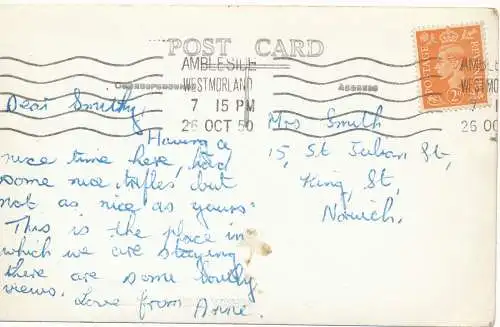 POST CARD
AMBLESIDE
WESTMORLAND
7 15 PM
26 OCT 50
AMBLESIDE
WESTMORLAND
7
26 OCT 50
POSTAGE
CORRESPONDENCE
ADDRESS
Dear Smithy,
Having a
nice time here, had
some nice trifles but
not as nice as yours.
This is the place in
which we are staying
there are some lovely
views. Love from Anne.
Mrs Smith
15, St Julian St,
King, St,
Norwich.